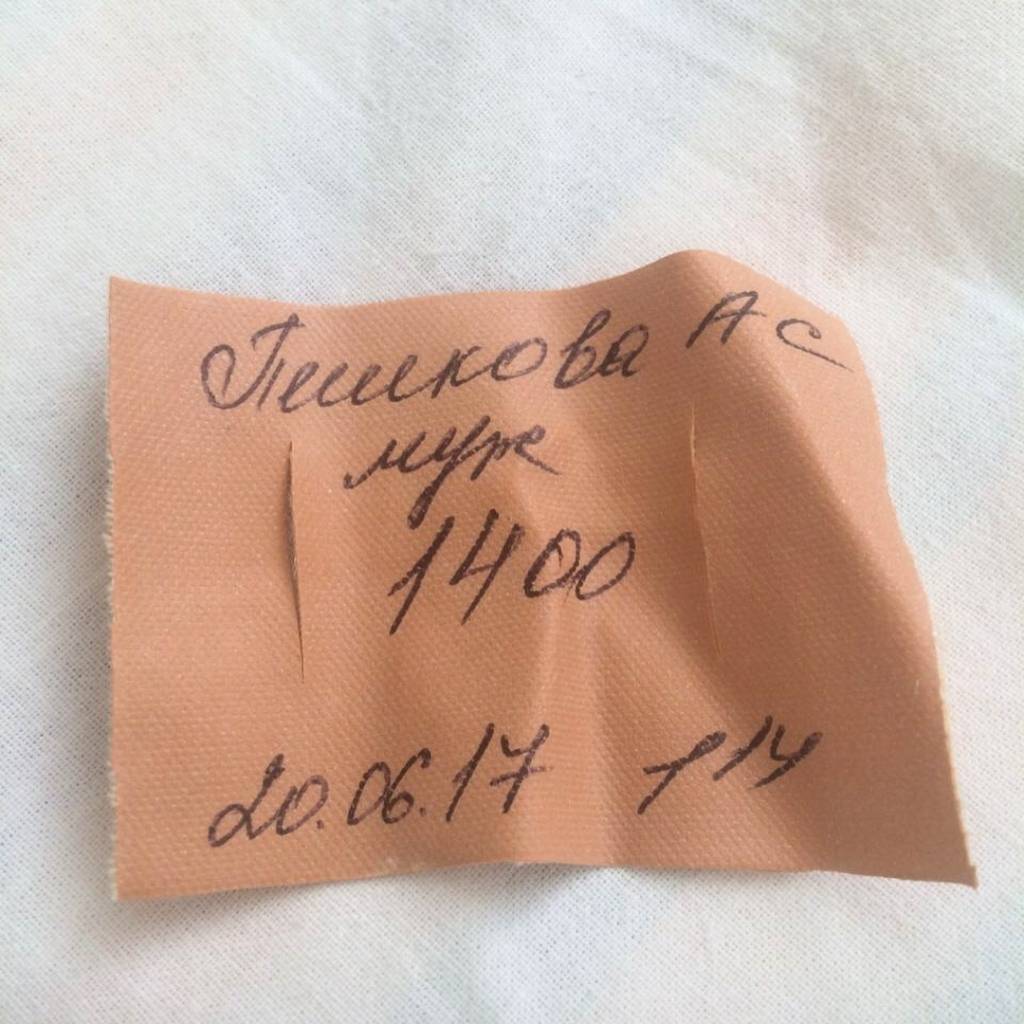 Пшикова А С
муж
1400
20.06.17